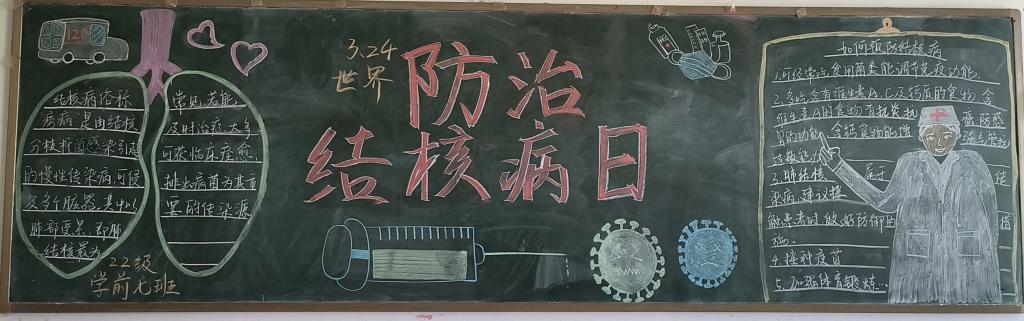 120
3.24
世界
防治
结核病日
结核病俗称
痨病是由结核
分枝杆菌感染引起
的慢性传染病,可侵
及多个脏器,其中以
肺部
结核最为
常见,若能
及时治疗,大多
可获临床痊愈
排出病菌为其重
要的传染源
22级
学前七班
如何预防结核病
1.可经常吃食用菌类能调节免疫功能.
2.多吃含有维生素A、C及钙质的食物.含
维生素A的食物
的功能.含钙食物能增强
过敏能力
3.肺结核
染病,建议接
触患者时做好防御的措
施.
4.接种疫苗
5.加强体育锻炼…